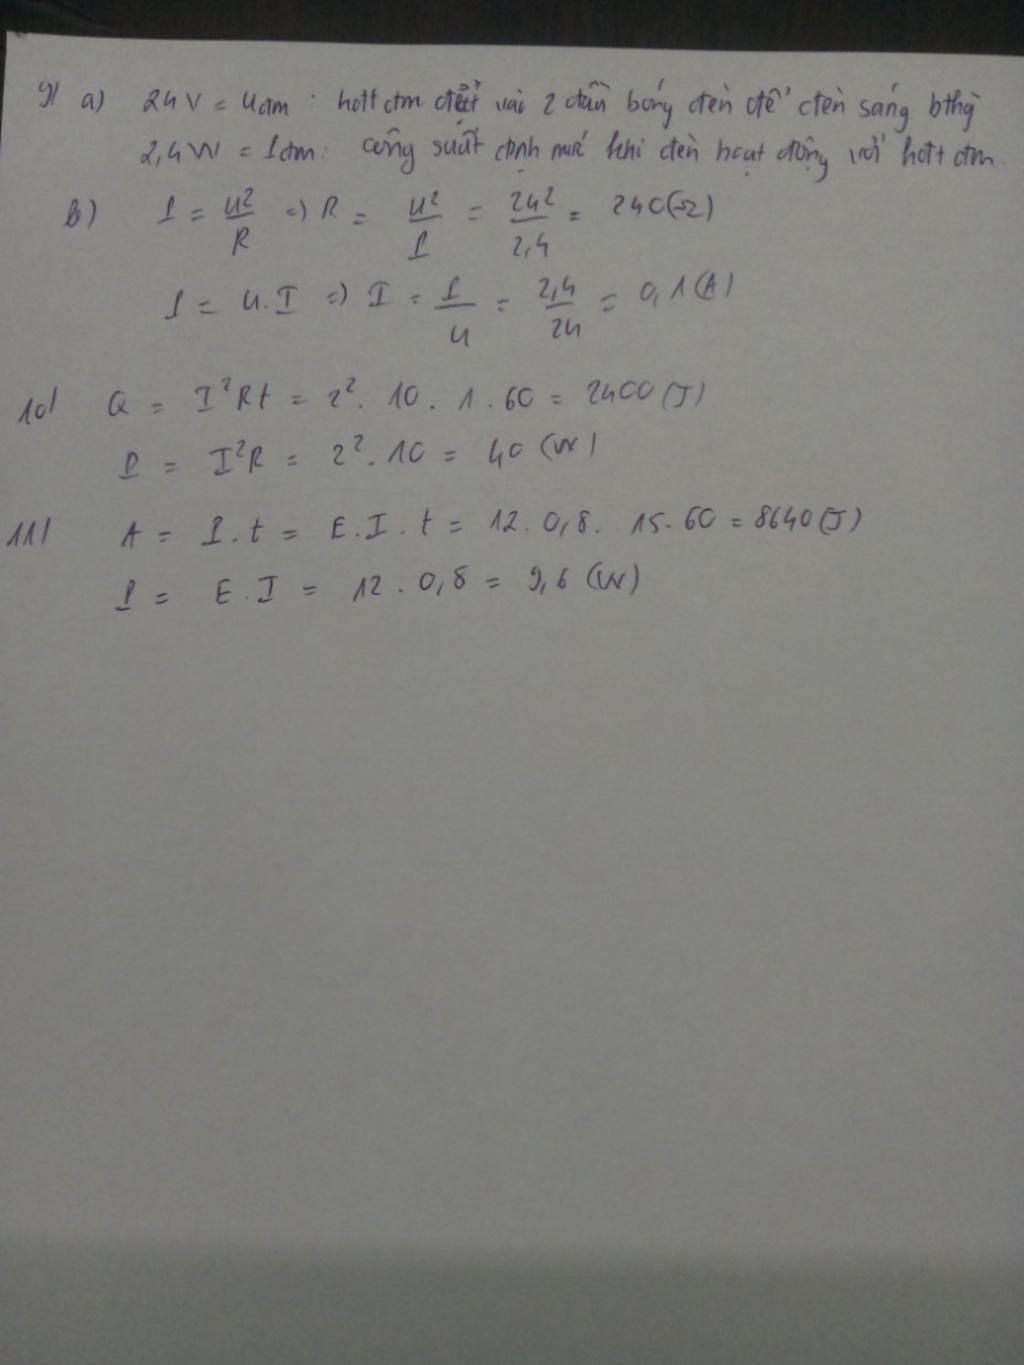 9/ a) 24V = Uđm : hđt đm đặt vào 2 đầu bóng đèn để đèn sáng bthg
2,4W = Pđm: công suất định mức khi đèn hoạt động với hđt đm.
b) P = U²/R => R = U²/P = 24²/2,4 = 240(Ω)
P = U.I => I = P/U = 2,4/24 = 0,1(A)
10/ Q = I²Rt = 2². 10. 1. 60 = 2400 (J)
P = I²R = 2². 10 = 40 (W)
11/ A = P.t = E.I.t = 12. 0,8. 15. 60 = 8640 (J)
P = E.I = 12. 0,8 = 9,6 (W)